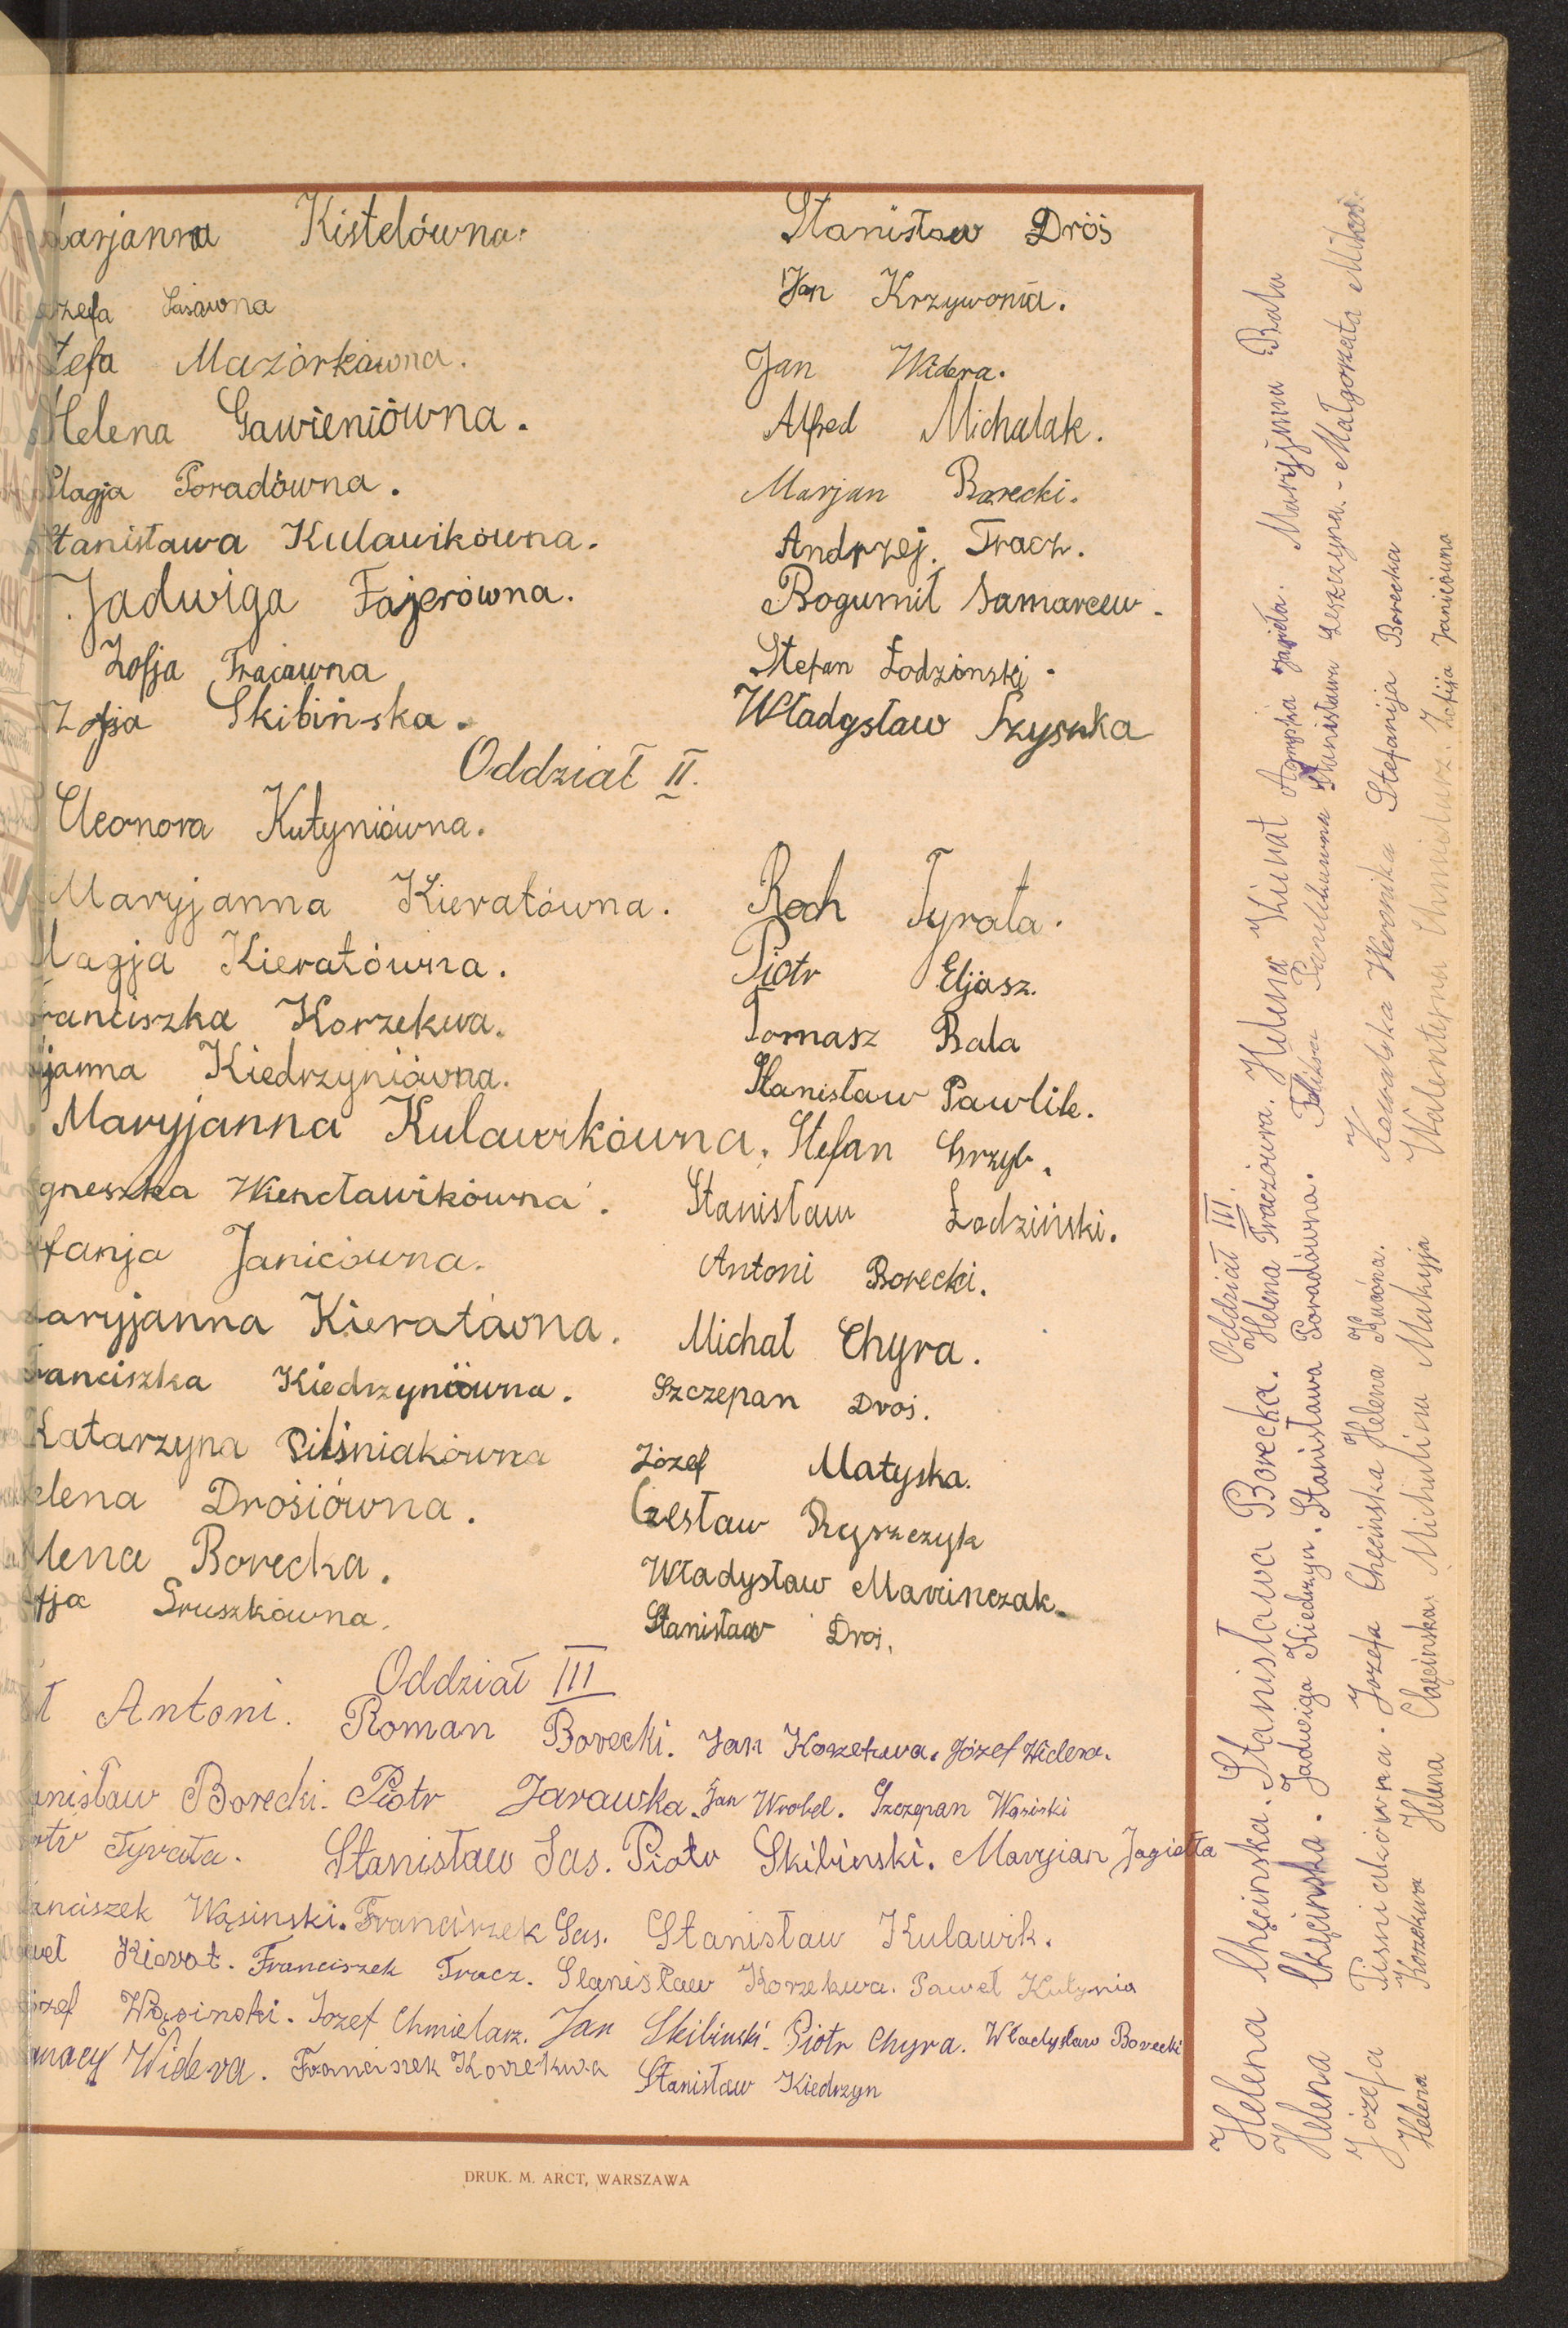 Marjanna Kistelówna. Stanisław Dróś
Józefa Sasówna Jan Krzywonia.
Józefa Mazórkówna. Jan Widera.
Helena Gawieniówna. Alfred Michalak.
Pelagja Poradówna. Marjan Borecki.
Stanisława Kulawikówna. Andrzej Tracz.
Jadwiga Fajerówna. Bogumił Samarcew.
Zofja Traczówna Stefan Łodzinski.
Zofja Skibińska. Władysław Szyszka
Oddział II.
Eleonora Kutyniówna.
Maryjanna Kieratówna. Roch Tyrała.
Magja Kieratówna. Piotr Eljasz.
Franciszka Korzekwa. Tomasz Bala
janna Kiedrzyniówna. Stanisław Pawlik.
Maryjanna Kulawikówna. Stefan Grzyb.
Agneszka Wiencławikówna. Stanisław Łodziński.
Stefanja Janicówna. Antoni Borecki.
Maryjanna Kieratówna. Michał Chyra.
Franciszka Kiedrzyniówna. Szczepan Droś.
Katarzyna Piłśniakówna Józef Matyska.
Helena Drośiówna. Czesław Ryszczyk
Helena Borecka. Władysław Marcinczak.
Zofja Gruszkówna. Stanisław Droś.
Oddział III
Antoni. Roman Borecki. Jan Korzekwa. Józef Widera.
Stanisław Borecki. Piotr Jarawka. Jan Wrobel. Szczepan Wąsiński
Piotr Tyrała. Stanisław Sas. Piotr Skibinski. Maryjan Jagiełła
Franciszek Wąsinski. Franciszek Sas. Stanisław Kulawik.
Paweł Kierat. Franciszek Tracz. Stanisław Korzekwa. Paweł Kutynia
Józef Wąsinski. Jozef Chmielarz. Jan Skibiński. Piotr Chyra. Władysław Borecki
Ignacy Widera. Franciszek Korzekwa Stanisław Kiedrzyn
DRUK. M. ARCT, WARSZAWA
Oddział III.
Helena Chęcinska. Stanisława Borecka. Helena Traczówna. Helena Kierat Agnyska Jagieła. Maryjanna Bala
Helena Chęcińska. Jadwiga Kiedrzyn. Stanisława Poradówna. Feliksa Pawlikówna Stanisława Leszczyna. - Małgorzata Mikoś.
Józefa Piśniakówna. Jozefa Chęcińska Helena Kucówna. Kowalska Weronika Stefanija Borecka
Helena Korzekwa Helena Chęcińska. Michalina Makyja Walentyna Chmielarz. Zofija Janicówna